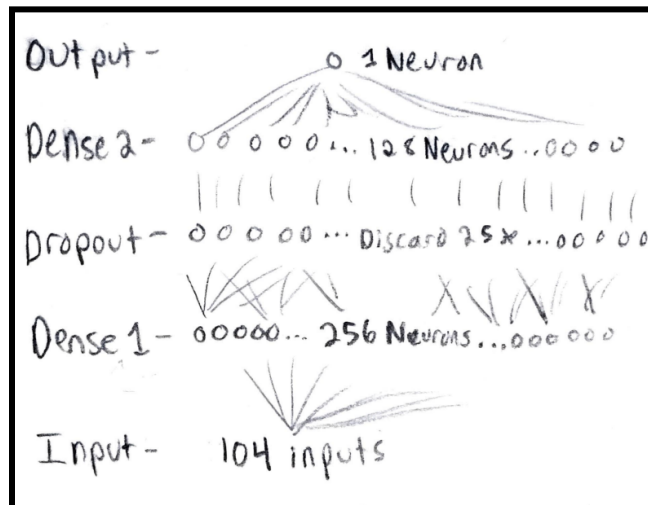 Output - O 1 Neuron
Dense 2 - O O O O O ... 128 Neurons ... O O O O
Dropout - O O O O O ... Discard 25% ... O O O O O
Dense 1 - O O O O O ... 256 Neurons ... O O O O O O
Input - 104 inputs